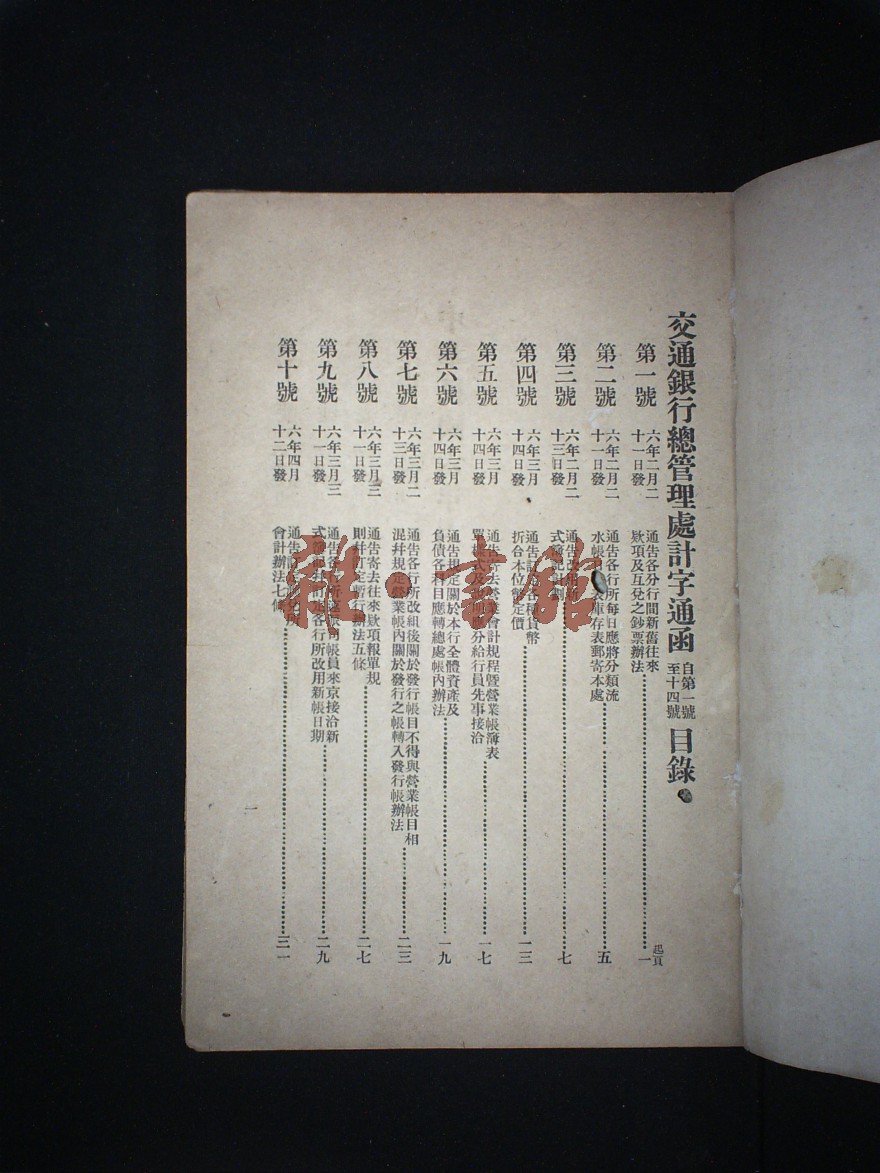 交通銀行總管理處計字通函 自第一號至十四號 目錄
起頁
第一號 六年二月二十一日發 通告各分行間新舊往來欵項及互兌之鈔票辦法 一
第二號 六年二月二十一日發 通告各行所每日應將分類流水帳 表庫存表郵寄本處 五
第三號 六年二月二十三日發 通告改用 式簿記計劃 七
第四號 六年三月十四日發 通告 各種貨幣折合本位幣定價 一三
第五號 六年三月十四日發 通告寄去營業會計規程暨營業帳簿表單 式及 應分給行員先事接洽 一七
第六號 六年三月十四日發 通告規定關於本行全體資產及負債各科目應轉總處帳內辦法 一九
第七號 六年三月二十三日發 通告各行所改組後關於發行帳目不得與營業帳目相混幷規定營業帳內關於發行之帳轉入發行帳辦法 二三
第八號 六年三月三十一日發 通告寄去往來欵項報單規則幷訂定暫行辦法五條 二七
第九號 六年三月三十一日發 通告各行所 帳員來京接洽新式簿記幷 定各行所改用新帳日期 二九
第十號 六年四月十二日發 通告 兌所會計辦法七條 三一
一
雜·書館